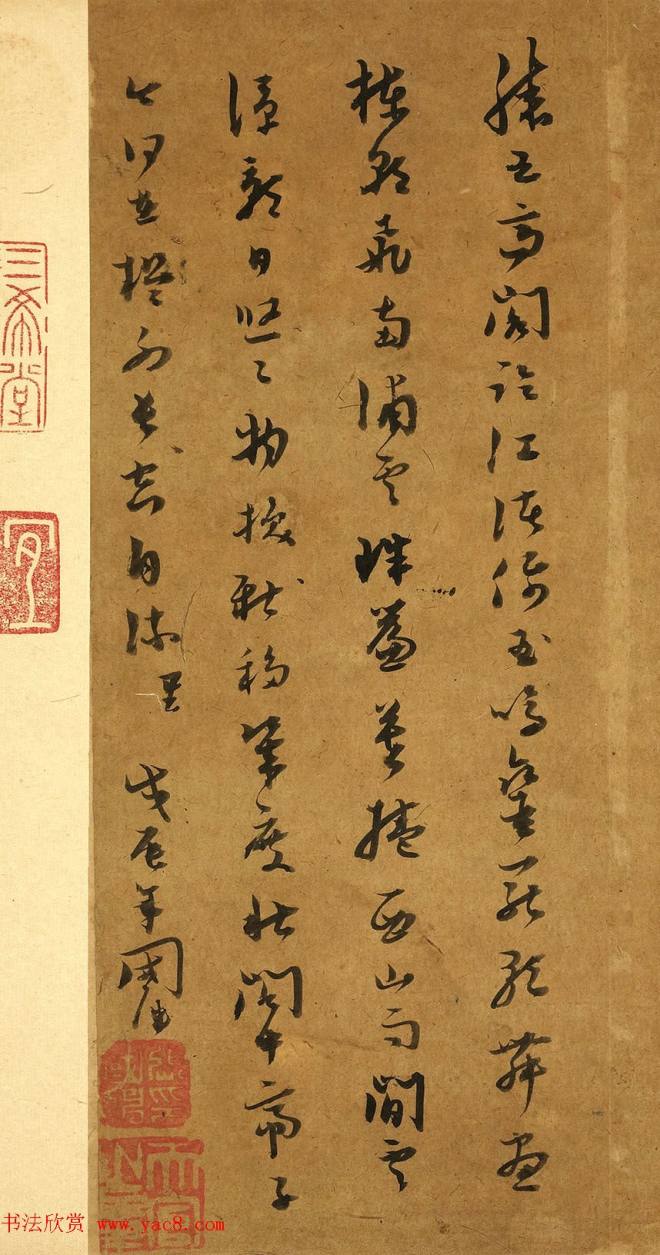 滕王高閣臨江渚佩玉鳴鑾罷歌舞畫
棟朝飛南浦雲珠簾暮捲西山雨閒雲
潭影日悠々物換星移幾度秋閣中帝子
今何在檻外長空自流
戊辰年
三希堂
宜
书法欣赏 www.yac8.com